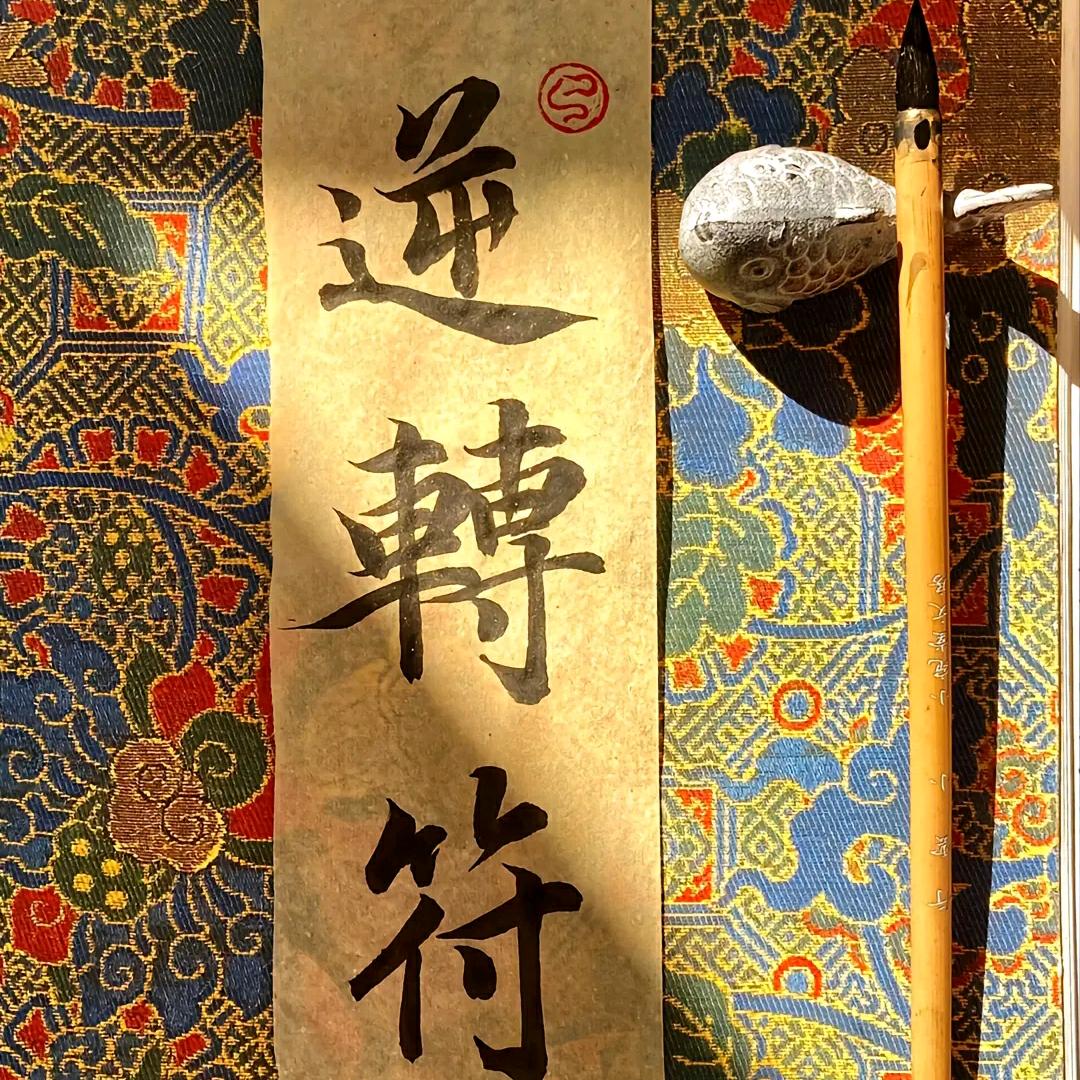 逆轉符